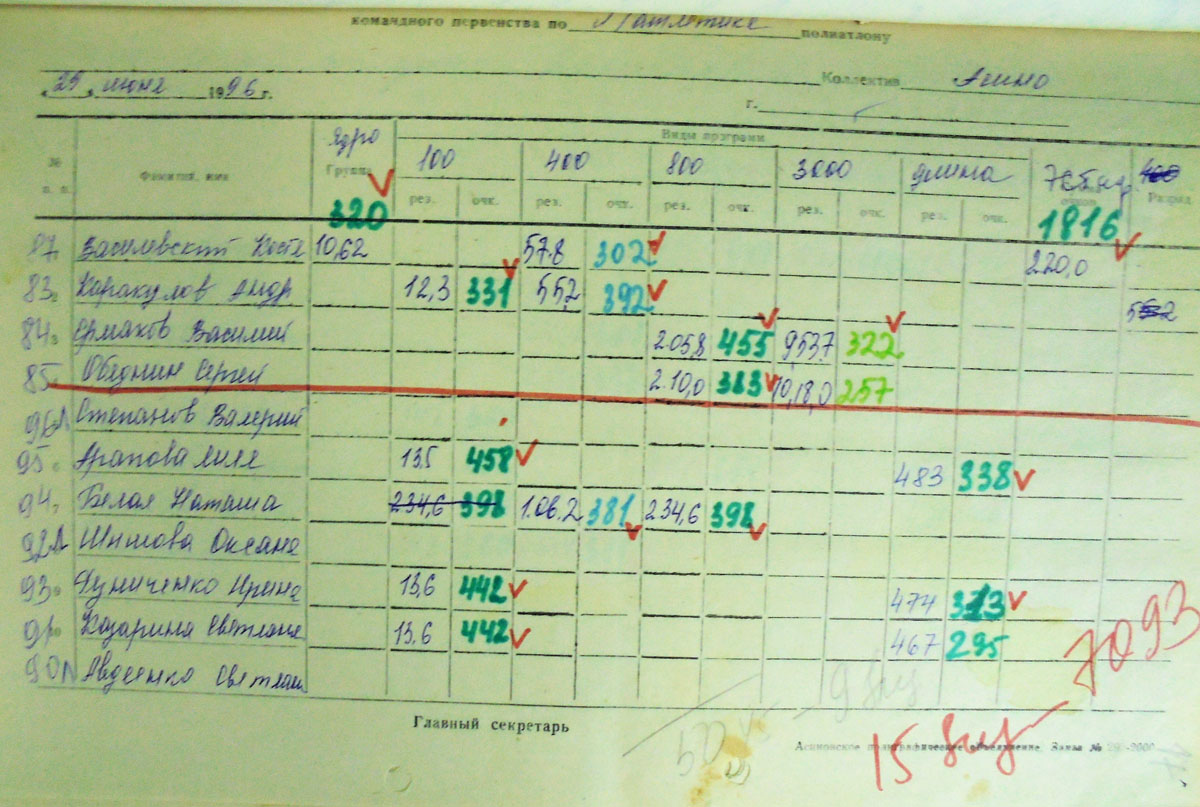 командного первенства по Л/атлетике полиатлону
Коллектив Асино
"29" июня 1996 г.
г.
№ п. п. Фамилия, имя Ядро Группа Виды программ
100 400 800 3000 длина очков Разряд
рез. очк. рез. очк. рез. очк. рез. очк. рез. очк.
320 1816
87 Василевский Костя 10,62 57.8 302 220,0
83 Каракулов Андр 12,3 331 55,2 392
84 Ермаков Василий 2.05,8 455 9.53,7 322
85 Обеднин Сергей 2.10,0 383 10,18,0 257
96 Степанов Валерий
95 Арапова Лиля 13,5 458 483 338
94 Белая Наташа 2.34,6 398 1.06.2 381 2.34,6 398
92 Шитова Оксана
93 Дуниченко Ирина 13,6 442 474 313
91 Казарина Светлана 13,6 442 467 295
90 Авдеенко Светлан
7093
Главный секретарь
15
Асиновское полиграфическое объединение. Заказ №